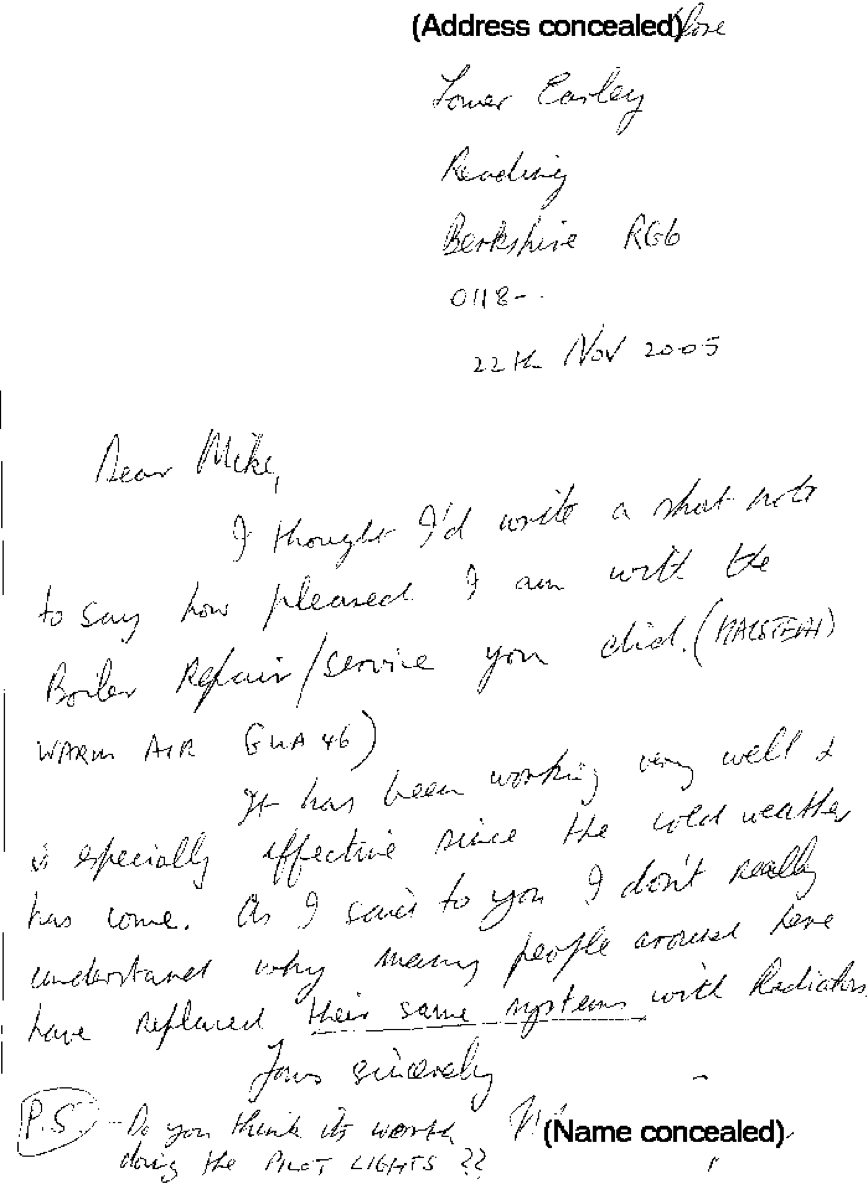 (Address concealed)
Lower Earley
Reading
Berkshire RG6
0118-
22th Nov 2005
Dear Mike,
I thought I'd write a short note
to say how pleased I am with the
Boiler Repair/service you did. (
WARM AIR GWA 46)
It has been working very well &
is especially effective since the cold weather
has come. As I said to you I don't really
understand why many people around here
have replaced their same systems with Radiators
Yours sincerely
(Name concealed)
P.S. - Do you think its worth
doing the PILOT LIGHTS ??